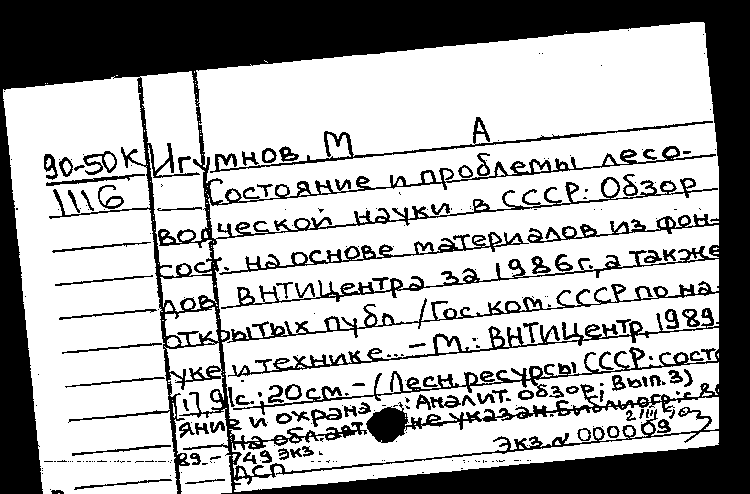 90-50К Игумнов, М А
1116 Состояние и проблемы лесо-
водческой науки в СССР: Обзор
сост. на основе материалов из фон-
дов ВНТИЦентра за 1986г., а также
открытых публ. /Гос. ком. СССР по на-
уке и технике... - М.: ВНТИЦентр, 1989.
[1], 91с.; 20см. - (Лесн. ресурсы СССР: состо
яние и охрана : Аналит. обзор; Вып. 3)
На обл. авт. не указан. Библиогр.: с
89. - 749 экз. Экз. № 000009
ДСП